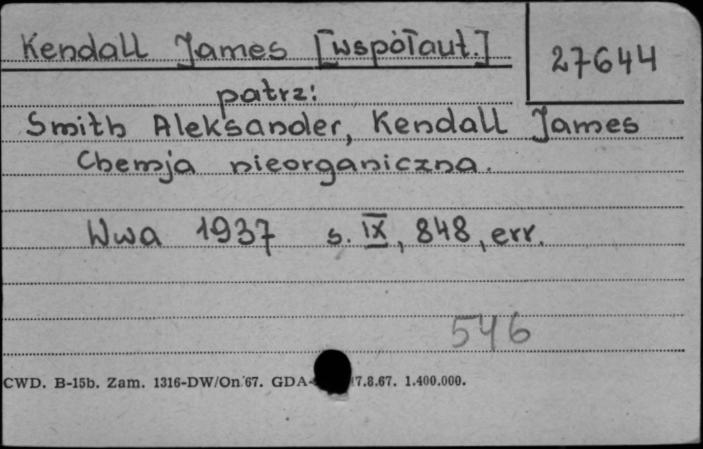 Kendall James [współaut.]
27644
patrz:
Smith Aleksander, Kendall James
Chemja nieorganiczna.
Wwa 1937 s. IX, 848, err.
546
CWD. B-15b. Zam. 1316-DW/On 67. GDA- 7.8.67. 1.400.000.